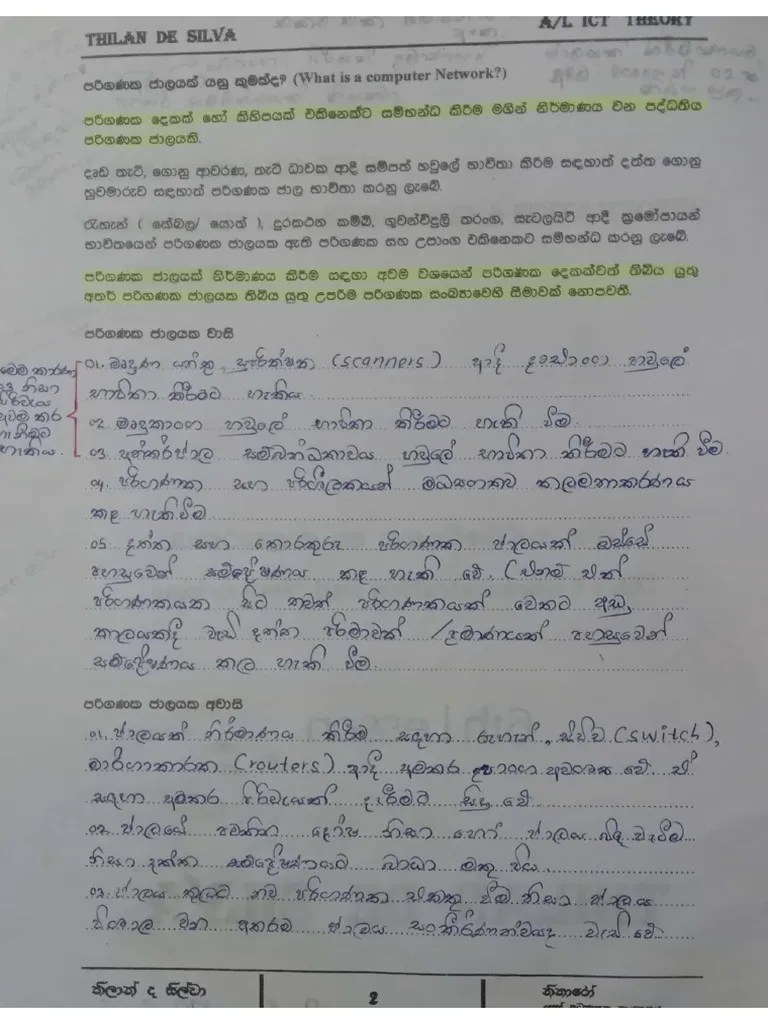 THILAN DE SILVA
A/L ICT THEORY
පරිගණක ජාලයක් යනු කුමක්ද? (What is a computer Network?)
පරිගණක දෙකක් හෝ කිහිපයක් එකිනෙකට සම්භන්ධ කිරීම මගින් නිර්මාණය වන පද්ධතිය
පරිගණක ජාලයකි.
දෘඩ තැටි, ගොනු ආවරණ, තැටි ධාවක ආදී සම්පත් හවුලේ භාවිතා කිරීම සඳහාත් දත්ත ගොනු
හුවමාරුව සඳහාත් පරිගණක ජාල භාවිතා කරනු ලැබේ.
රැහැන් ( කේබල/ යොත් ), දුරකථන කම්බි, ගුවන්විදුලි තරංග, සැටලයිට් ආදී ක්‍රමෝපායන්
භාවිතයෙන් පරිගණක ජාලයක ඇති පරිගණක සහ උපාංග එකිනෙකට සම්භන්ධ කරනු ලැබේ.
පරිගණක ජාලයක් නිර්මාණය කිරීම සඳහා අවම වශයෙන් පරිගණක දෙකක්වත් තිබිය යුතු
අතර පරිගණක ජාලයක තිබිය යුතු උපරිම පරිගණක සංඛ්‍යාවෙහි සීමාවක් නොපවතී.
පරිගණක ජාලයක වාසි
01. මුද්‍රණ යන්ත්‍ර, සුපරික්ෂක (scanners) ආදී උපාංග හවුලේ
භාවිතා කිරීමට හැකිය
02. මෘදුකාංග හවුලේ භාවිතා කිරීමට හැකි වීම.
03. අන්තර්ජාල සම්බන්ධතාවය හවුලේ භාවිතා කිරීමට හැකි වීම.
මෙම කාරණා
නිසා
පිරිවැය
අවම කර
ගැනීමට
හැකිය.
04. පරිගණක සහ පරිශීලකයන් මධ්‍යගතව කලමනාකරණය
කළ හැකිවීම
05. දත්ත සහ තොරතුරු පරිගණක ජාලයක් ඔස්සේ
පහසුවෙන් සම්ප්‍රේෂණය කළ හැකි වේ. (එනම් එක්
පරිගණකයක සිට තවත් පරිගණකයක් වෙතට අඩු
කාලයකදී වැඩි දත්ත පරිමාවක් /ප්‍රමාණයක් පහසුවෙන්
සම්ප්‍රේෂණය කල හැකි වීම.
පරිගණක ජාලයක අවාසි
01. ජාලයක් නිර්මාණය කිරීම සඳහා රැහැන්, ස්විච (switch),
මාර්ගාකාරක (routers) ආදී අමතර උපාංග අවශ්‍ය වේ. ඒ
සඳහා අමතර පිරිවැයක් දැරීමට සිදු වේ
02. ජාලයේ පවතින දෝෂ නිසා හෝ ජාලය බිඳ වැටීම
නිසා දත්ත සම්ප්‍රේෂණයට බාධා මතු විය.
03. ජාලය තුලට නව පරිගණක එකතු වීම නිසා ජාලය
විශාල වන අතරම ජාලය සංකීර්ණත්වයද වැඩි වේ
තිලාන් ද සිල්වා
2